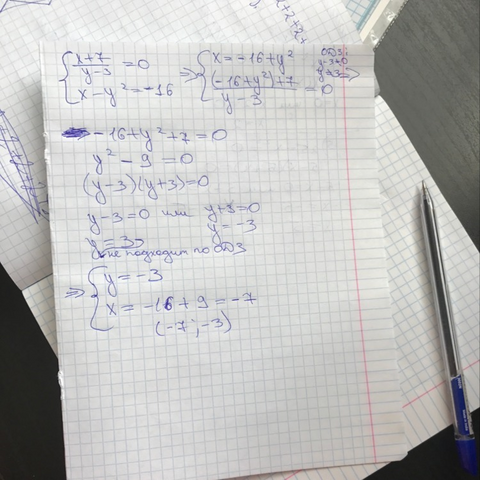 { (x+7)/(y-3) = 0 ; x - y² = -16 => { x = -16 + y² ; ((-16+y²)+7)/(y-3) = 0
ОДЗ:
y-3≠0
y≠3 =>
-16+y²+7=0
y² - 9 = 0
(y-3)(y+3)=0
y-3=0 или y+3=0
y=3 y=-3
не подходит по ОДЗ
=> { y = -3
x = -16 + 9 = -7
(-7; -3)